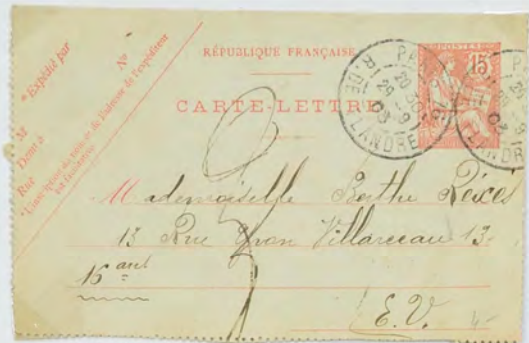 * Expédié par
M
Demt à
Rue
No
* L'inscription du nom et de l'adresse de l'expéditeur
est facultative
RÉPUBLIQUE FRANÇAISE
CARTE-LETTRE
POSTES
15
PARIS
20 30
29 - 9
03
R. DE LANDRE
Mademoiselle Berthe
13 Rue Yvon Villarceau 13
16 art
E. V.